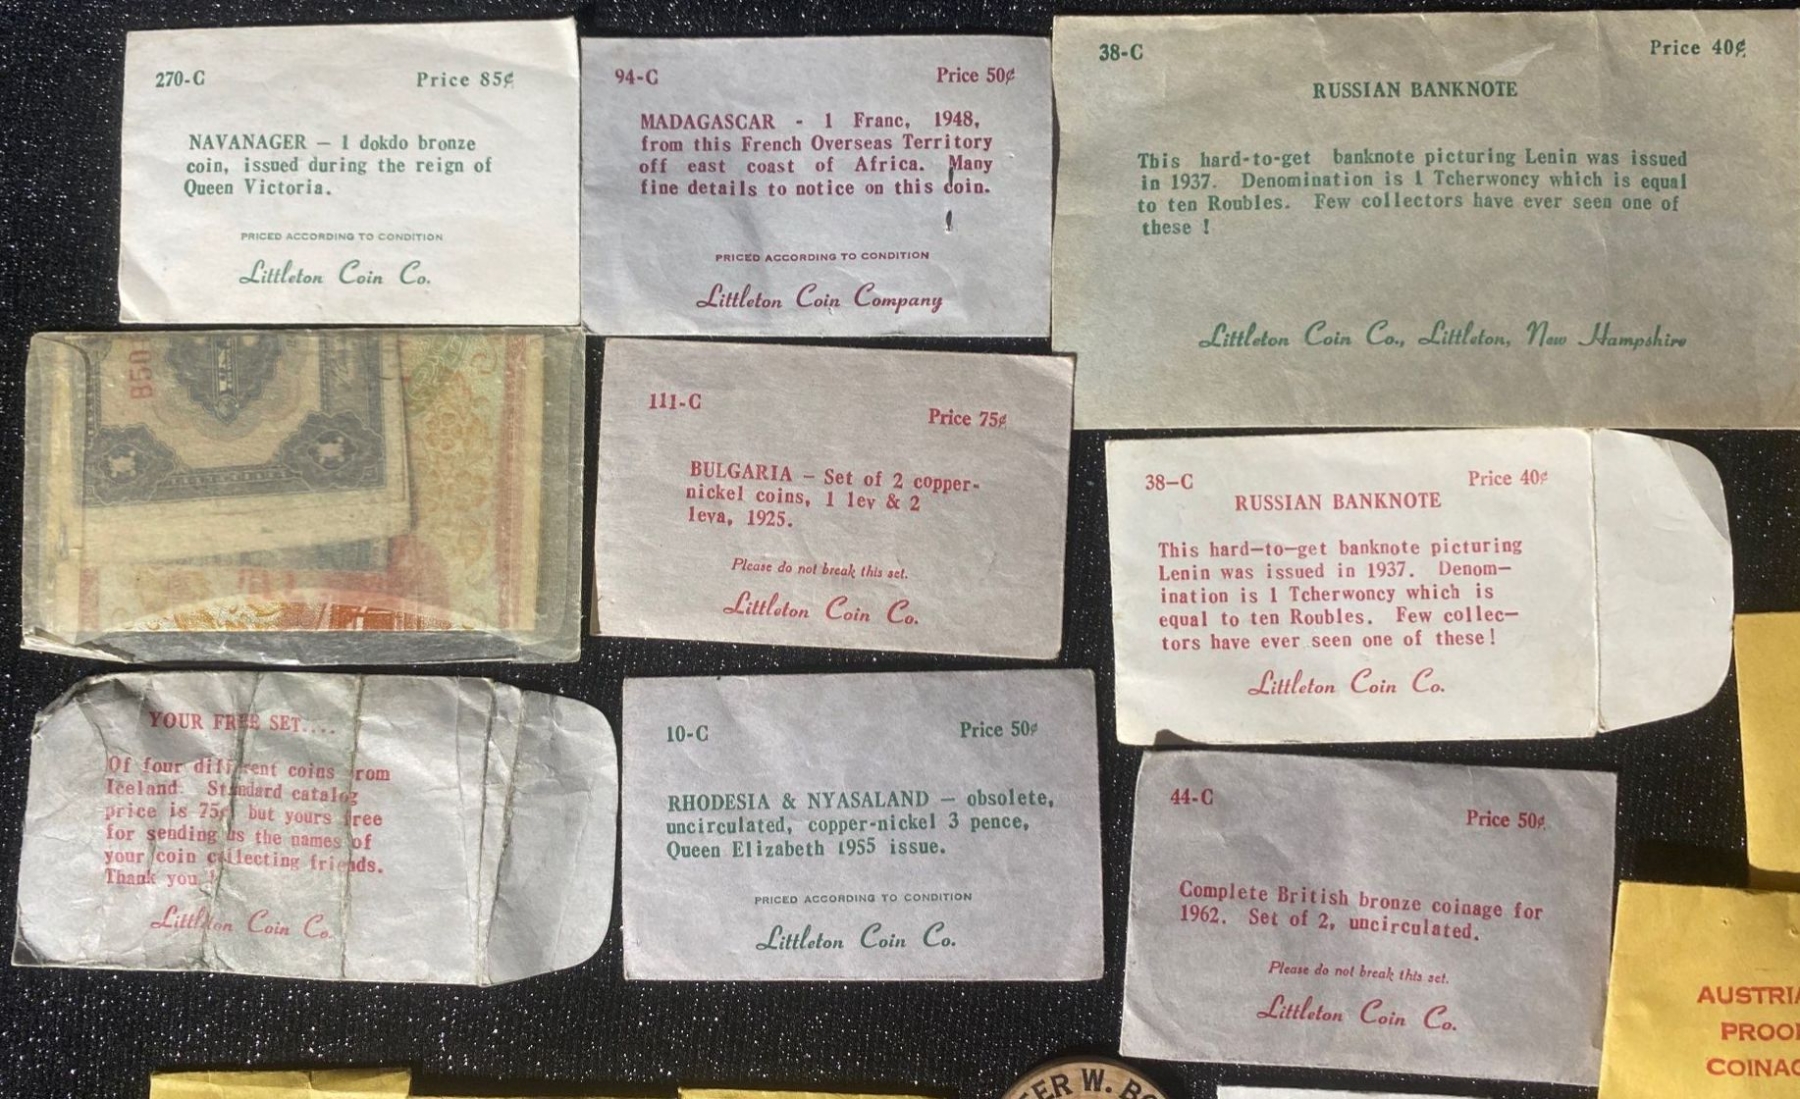 270-C Price 85¢
NAVANAGER — 1 dokdo bronze
coin, issued during the reign of
Queen Victoria.
PRICED ACCORDING TO CONDITION
Littleton Coin Co.
94-C Price 50¢
MADAGASCAR - 1 Franc, 1948,
from this French Overseas Territory
off east coast of Africa. Many
fine details to notice on this coin.
PRICED ACCORDING TO CONDITION
Littleton Coin Company
38-C Price 40¢
RUSSIAN BANKNOTE
This hard-to-get banknote picturing Lenin was issued
in 1937. Denomination is 1 Tcherwoncy which is equal
to ten Roubles. Few collectors have ever seen one of
these !
Littleton Coin Co., Littleton, New Hampshire
B50
111-C Price 75¢
BULGARIA — Set of 2 copper-
nickel coins, 1 lev & 2
leva, 1925.
Please do not break this set.
Littleton Coin Co.
38—C Price 40¢
RUSSIAN BANKNOTE
This hard—to—get banknote picturing
Lenin was issued in 1937. Denom—
ination is 1 Tcherwoncy which is
equal to ten Roubles. Few collec—
tors have ever seen one of these!
Littleton Coin Co.
YOUR FREE SET....
Of four different coins from
Iceland. Standard catalog
price is 75¢ but yours free
for sending us the names of
your coin collecting friends.
Thank you !
Littleton Coin Co.
10-C Price 50¢
RHODESIA & NYASALAND — obsolete,
uncirculated, copper-nickel 3 pence,
Queen Elizabeth 1955 issue.
PRICED ACCORDING TO CONDITION
Littleton Coin Co.
44-C Price 50¢
Complete British bronze coinage for
1962. Set of 2, uncirculated.
Please do not break this set.
Littleton Coin Co.
AUSTRIA
PROO
COINAG
ER W. BO